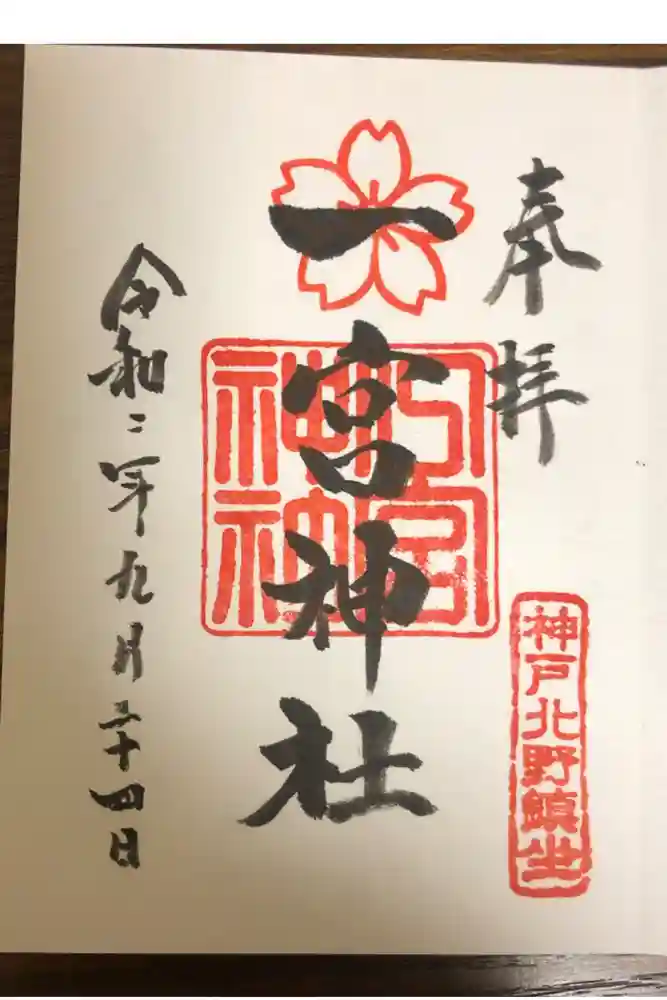 奉拝
神戸北野鎮坐
一宮神社
令和二年九月二十四日